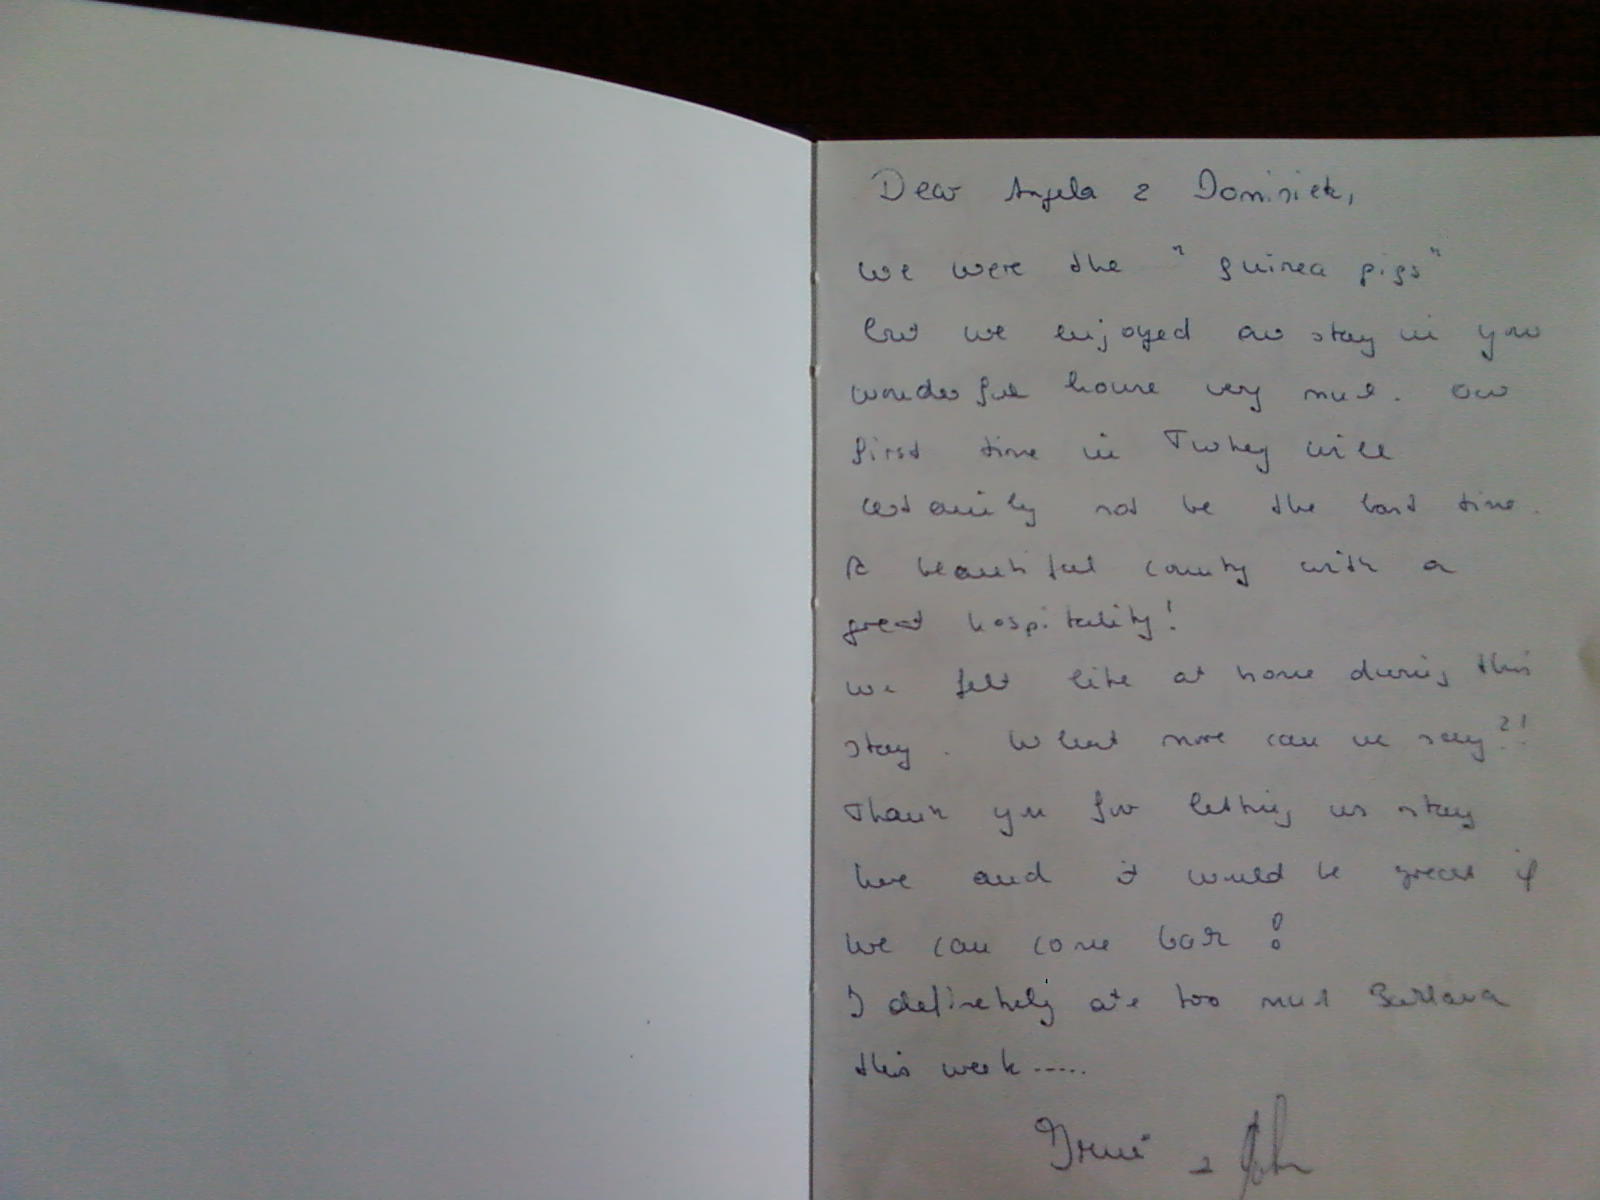 Dear Angela & Dominiek,
we were the "guinea pigs"
but we enjoyed our stay in your
wonderful house very much. Our
first time in Turkey will
certainly not be the last time.
A beautiful country with a
great hospitality!
We felt like at home during this
stay. What more can we say?!
Thank you for letting us stay
here and it would be great if
we can come back!
I definitely ate too much Baklava
this week.....
Irene & John